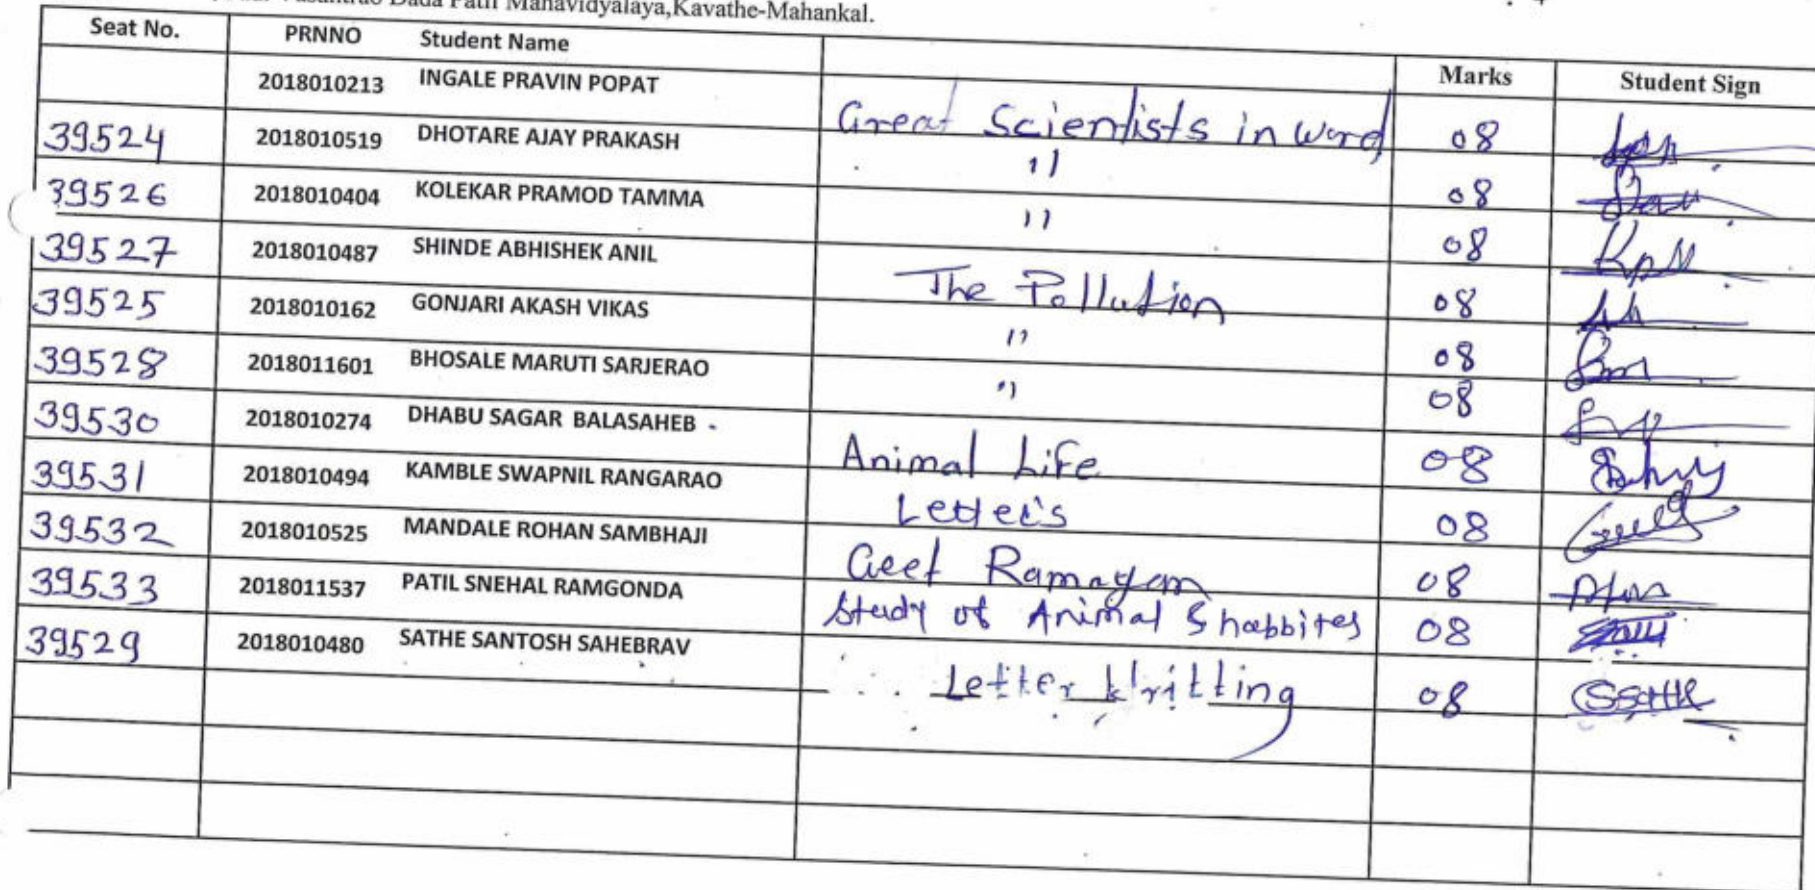 Dada Patil Mahavidyalaya,Kavathe-Mahankal.
Seat No. PRNNO Student Name Marks Student Sign
2018010213 INGALE PRAVIN POPAT Great Scientists in word 08
39524 2018010519 DHOTARE AJAY PRAKASH " 08
39526 2018010404 KOLEKAR PRAMOD TAMMA " 08
39527 2018010487 SHINDE ABHISHEK ANIL The Pollution 08
39525 2018010162 GONJARI AKASH VIKAS " 08
39528 2018011601 BHOSALE MARUTI SARJERAO " 08
39530 2018010274 DHABU SAGAR BALASAHEB Animal Life 08
39531 2018010494 KAMBLE SWAPNIL RANGARAO Letter's 08
39532 2018010525 MANDALE ROHAN SAMBHAJI Geet Ramayan 08
39533 2018011537 PATIL SNEHAL RAMGONDA Study of Animal & habbites 08
39529 2018010480 SATHE SANTOSH SAHEBRAV Letter Writting 08 SSathe